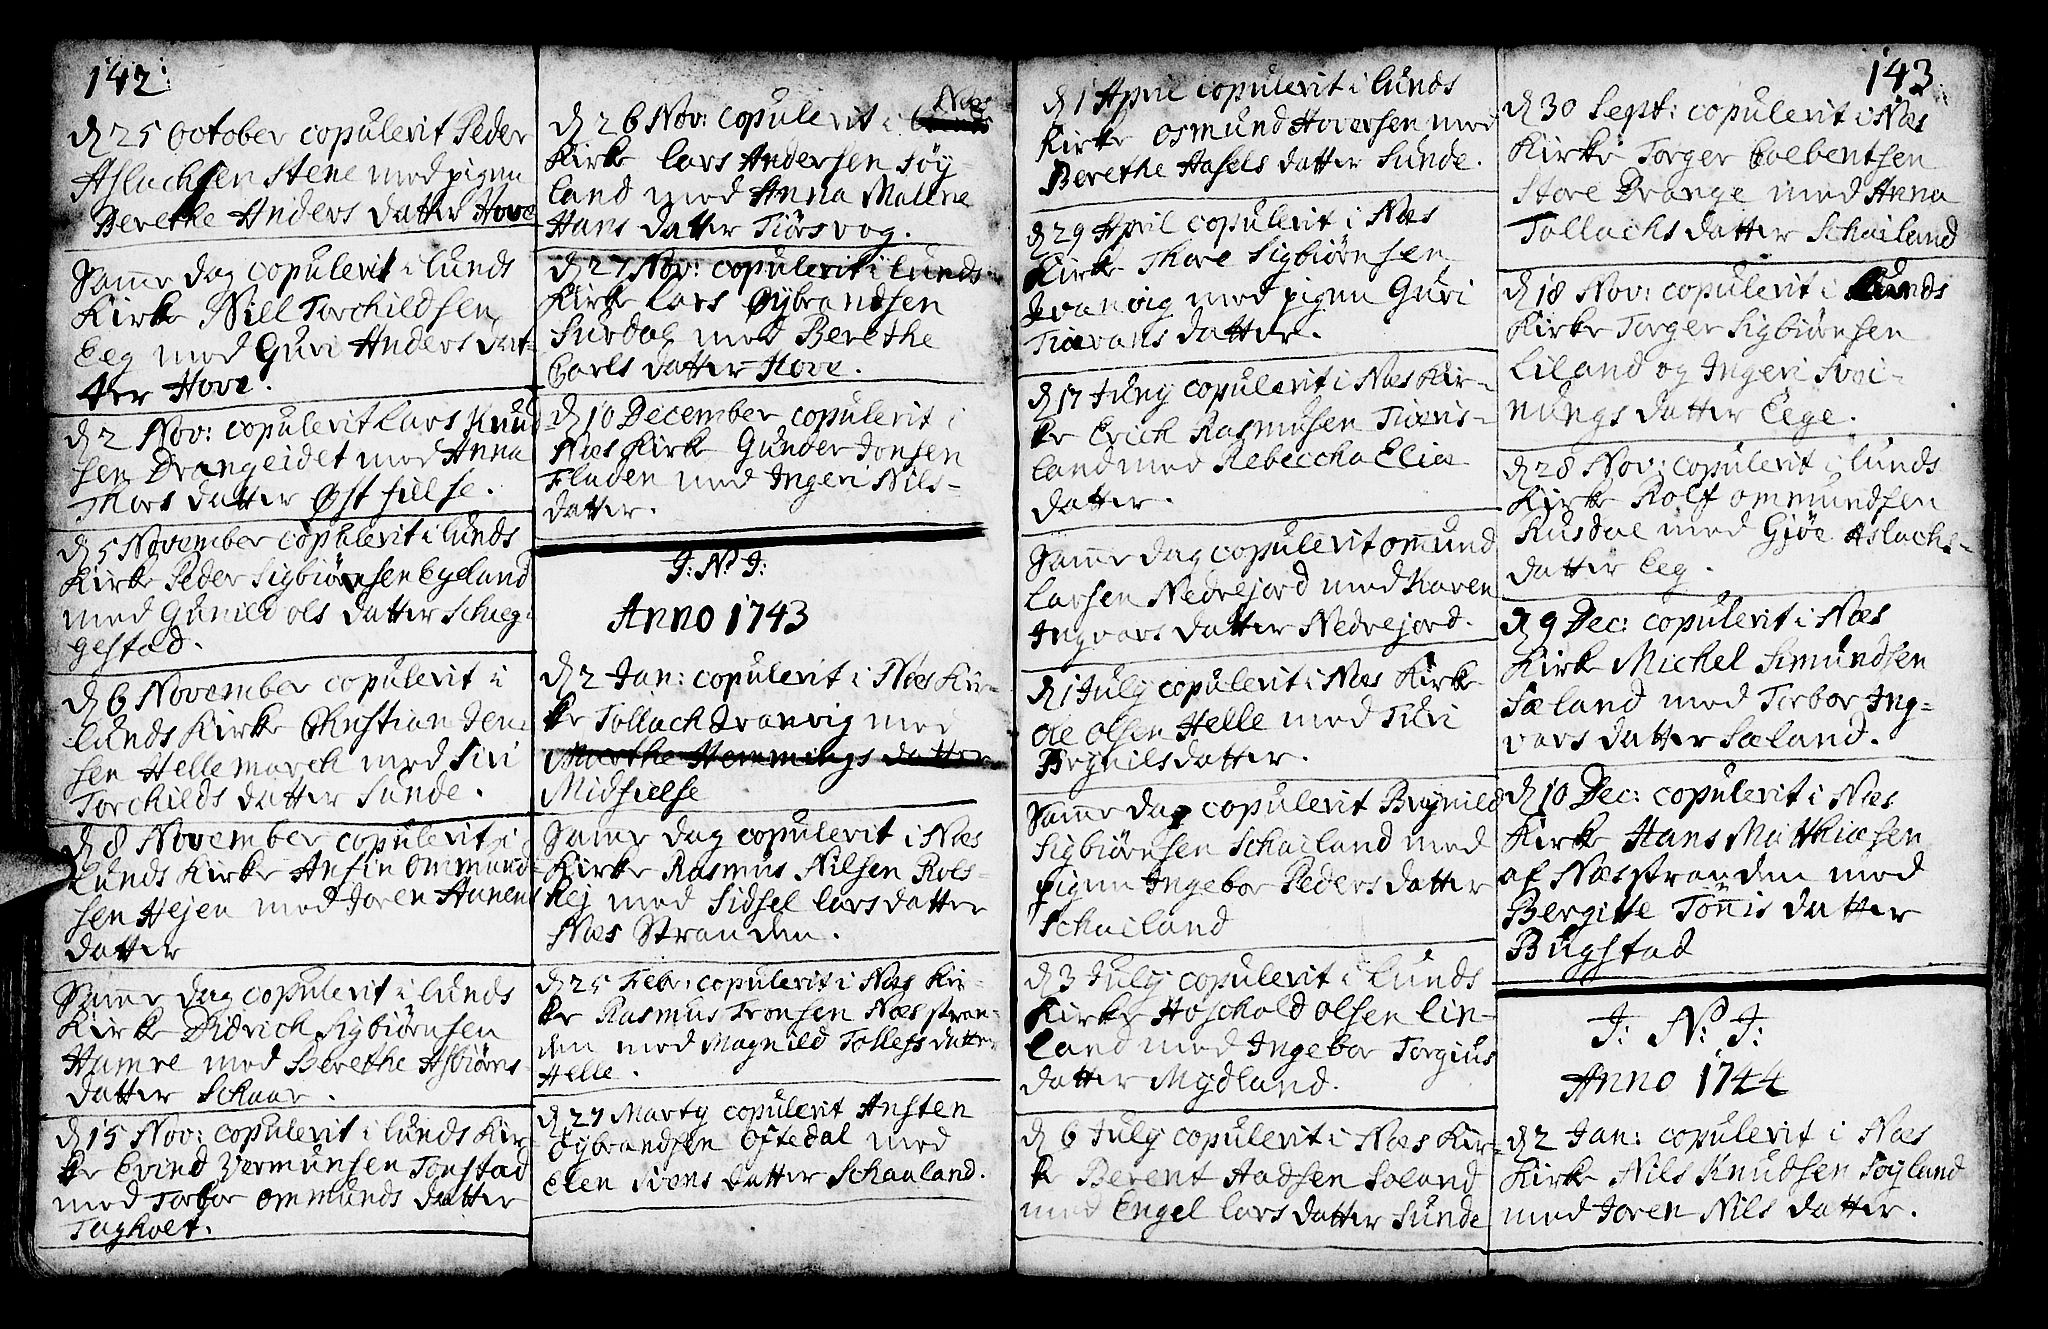 142
d 25 October copulerit Peder
Aslachsen Stene med pigen
Berethe Anders datter Hove
Samme dag copulerit i Lunds
Kirke Niell Torchildsen
Eeg med Guri Anders dat-
ter Hove.
d 2 Nov: copulerit Lars Knud
sen Drangeidet med Anna
Thors datter Øst sielse.
d 5 November copulerit i Lunds
Kirke Peder Sigbiørnsen Egeland
med Gunild Ols datter Scheg-
gestad.
d 6 November copulerit i
Lunds Kirke Christian Jen
sen Hellemarck med Siri
Torchilds datter Sunde.
d 8 November copulerit i
Lunds Kirke Ansin Ommund-
sen Hejen med Joren Aanens
datter
Samme dag copulerit i Lunds
Kirke Didrich Sigbiørnsen
Hamre med Berethe Asbiørns
datter Schaar.
d 15 Nov: copulerit i Lunds Kir-
ke Evind Giermunsen Tonstad
med Torbor Ommunds datter
Tagholt.
d 26 Nov: copulerit i Næs
Kirke Lars Andersen Søy-
land med Anna Malene
Hans datter Tiørsvog.
d 27 Nov: copulerit i Lunds
Kirke Lars Øybrandsen
Surdal med Berethe
Carls datter Hove.
d 10 December copulerit i
Næs Kirke Gunder Jonsen
Fladen med Ingeri Nils-
datter.
J: N: J:
Anno 1743
d 2 Jan: copulerit i Næs Kir-
ke Tollach Dranvig med
Marthe Hemmings datter
Midsielse
Samme dag copulerit i Næs
Kirke Rasmus Nilsen Roes-
hej med Sidsel Lars datter
Næs Stranden.
d 25 Febr: copulerit i Næs Kir-
ke Rasmus Tronsen Næs stran-
den med Magnild Tollefs datter
Helle.
d 27 Marty copulerit Ansten
Oybrandsen Oftedal med
Elen Ivers datter Schaaland.
143
d 1 April copulerit i Lunds
Kirke Osmund Hoversen med
Berethe Axels datter Sunde.
d 29 April copulerit i Næs
Kirke Thore Sigbiørnsen
Dranvig med pigen Guri
datter.
d 17 Juny copulerit i Næs Kir-
ke Erich Rasmusen
land med Rebeccha Elia
datter.
Samme dag copulerit Omund
Larsen Nedrejord med Karen
Ingvars datter Nedrejord.
d 1 July copulerit i Næs Kirke
Ole Olsen Helle med Turi
Brynilsdatter.
Samme dag copulerit Brynild
Sigbiørnsen Schailand med
pigen Ingebor Peders datter
Schailand
d 3 July copulerit i Lunds
Kirke Hoschold Olsen Ein-
land med Ingebor Torgius
datter Mydland.
d 6 July copulerit i Næs Kir-
ke Berent Aadsen Soland
med Engel Lars datter Sunde
d 30 Sept: copulerit i Næs
Kirke Torger Colbentsen
Store Drange med Anna
Tollachs datter Schailand
d 18 Nov: copulerit i Lunds
Kirke Torger Sigbiørnsen
Liland og Ingeri Svei-
nungs datter Eege.
d 28 Nov: copulerit i Lunds
Kirke Rolf Ommundsen
Rusdal med Gjøe Aslachs-
datter Eeg.
d 9 Dec: copulerit i Næs
Kirke Michel Simundsen
Sæland med Torbor Ing-
vars datter Sæland.
d 10 Dec: copulerit i Næs
Kirke Hans Matthiasen
af Næsstranden med
Bergitte Tönnis datter
Bugstad
J: N: J:
Anno 1744
d 2 Jan: copulerit i Næs
Kirke Nils Knudsen Søyland
med Joren Nils datter.